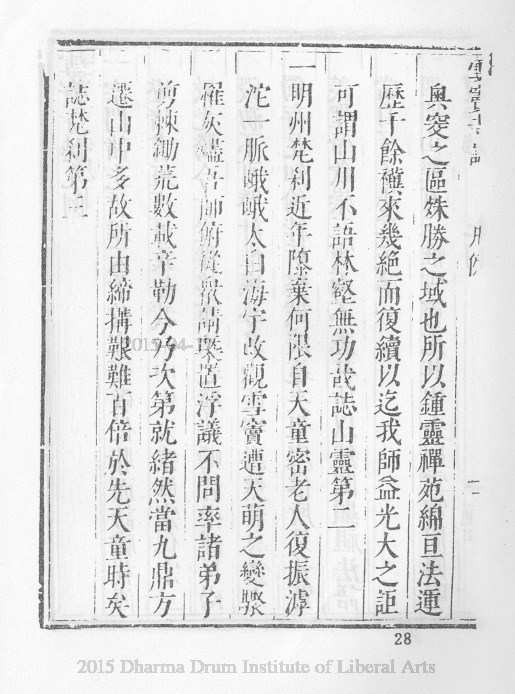 奧窔之區姝勝之域也所以鍾靈禪苑綿亘法運
歷千餘禩來幾絕而復續以迄我師益光大之詎
可謂山川不語林壑無功哉誌山靈第二
一明州梵剎近年隳棄何限自天童密老人復振滹
沱一脈峨峨太白海宇改觀雪竇遭天萌之變驟
罹灰燼吾師俯從眾請槩置浮議不問率諸弟子
剪棘鋤荒數載辛勤今乃次第就緒然當九鼎方
遷山中多故所由締搆艱難百倍於先天童時矣
誌梵剎第三
28
2015-04-
2015 Dharma Drum Institute of Liberal Arts